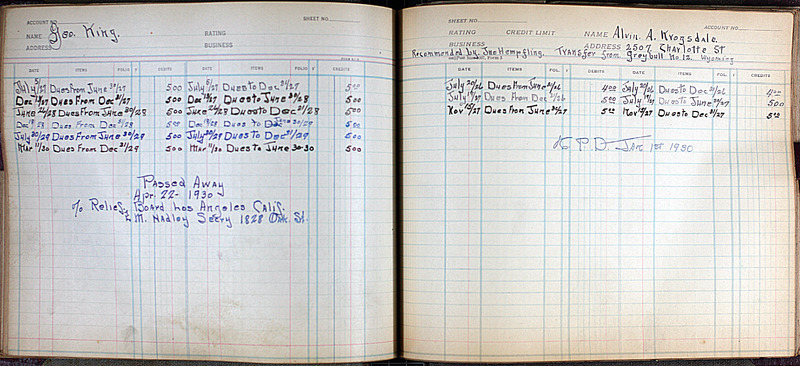 ACCOUNT NO. SHEET NO.
NAME Geo. King. RATING
ADDRESS BUSINESS
DATE ITEMS FOLIO √ DEBITS DATE ITEMS FOLIO √ CREDITS
July 5/27 Dues From June 30/27 5 00 July 5/27 Dues to Dec 31/27 5 00
Dec 19/27 Dues From Dec 31/27 5 00 Dec 19/27 Dues to June 30/28 5 00
June 28 Dues From June 30/28 5 00 June 28 Dues to Dec 31/28 5 00
Dec 18/28 Dues From Dec 31/28 5 00 Dec 18/28 Dues to June 30/29 5 00
July 20/29 Dues From June 30/29 5 00 July 20/29 Dues to Dec 31/29 5 00
Mar 11/30 Dues From Dec 31/29 5 00 Mar 11/30 Dues to June 30-30 5 00
Passed Away
Apr. 22 - 1930
c/o Relief Board Los Angeles Calif.
M. Hadley Seery 1828 Oak St.
SHEET NO. ACCOUNT NO.
RATING CREDIT LIMIT NAME Alvin. A. Krogsdale.
BUSINESS ADDRESS 2507 Charlotte St
Recommended by. Geo Hempfling. Transfer from Greybull No 12. Wyoming
DATE ITEMS FOL. √ DEBITS DATE ITEMS FOL. √ CREDITS
July 20/26 Dues From June 26 4 00 July 20/26 Dues to Dec 31/26 4 00
July 27 Dues From Dec 31/26 5 00 July 27 Dues to June 30/27 5 00
Nov 9/27 Dues From June 30/27 5 00 Nov 9/27 Dues to Dec 31/27 5 00
P. D. Jan 1st 1930